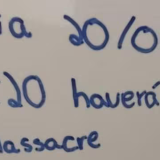 ia 20/0
20 haverá
assacre